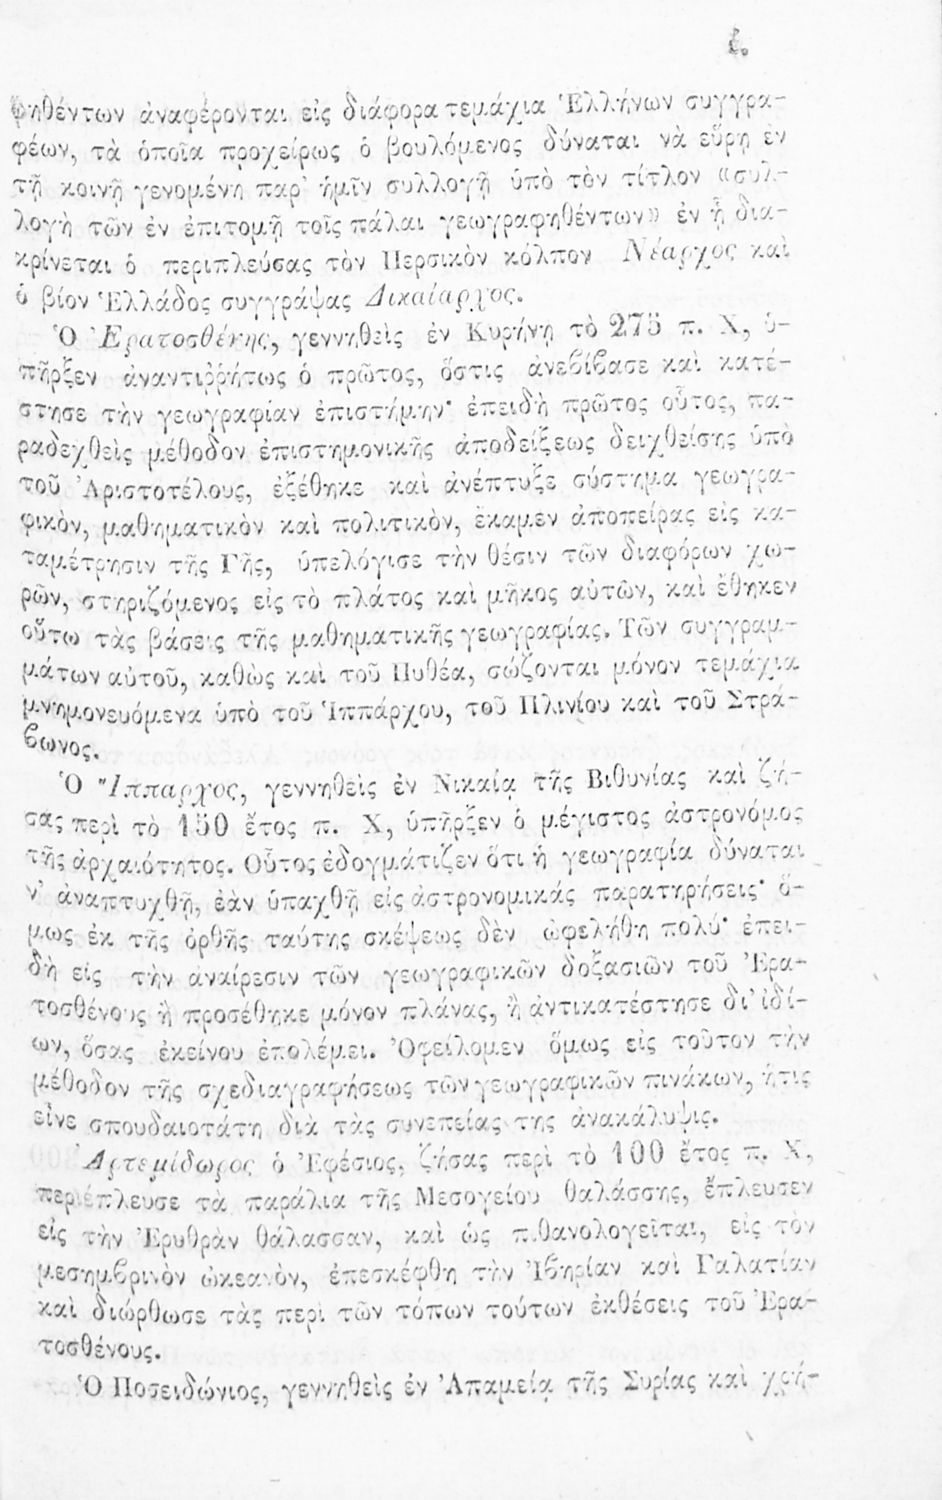 έ.
φηθέντων ἀναφέρονται εἰς διάφορα τεμάχια Ἑλλήνων συγγρα-
φέων, τὰ ὁποῖα προχείρως ὁ βουλόμενος δύναται νὰ εὕρῃ ἐν
τῇ κοινῇ γενομένῃ παρ' ἡμῖν συλλογῇ ὑπὸ τὸν τίτλον «συλ-
λογὴ τῶν ἐν ἐπιτομῇ τοῖς πάλαι γεωγραφηθέντων» ἐν ᾗ δια-
κρίνεται ὁ περιπλεύσας τὸν Περσικὸν κόλπον Νέαρχος καὶ
ὁ βίον Ἑλλάδος συγγράψας Δικαίαρχος.
Ὁ Ἐρατοσθένης, γεννηθεὶς ἐν Κυρήνῃ τὸ 275 π. Χ, ὑ-
πῆρξεν ἀναντιῤῥήτως ὁ πρῶτος, ὅστις ἀνεβίβασε καὶ κατέ-
στησε τὴν γεωγραφίαν ἐπιστήμην· ἐπειδὴ πρῶτος οὗτος, πα-
ραδεχθεὶς μέθοδον ἐπιστημονικῆς ἀποδείξεως δειχθείσης ὑπὸ
τοῦ Ἀριστοτέλους, ἐξέθηκε καὶ ἀνέπτυξε σύστημα γεωγρα-
φικὸν, μαθηματικὸν καὶ πολιτικὸν, ἔκαμεν ἀποπείρας εἰς κα-
ταμέτρησιν τῆς Γῆς, ὑπελόγισε τὴν θέσιν τῶν διαφόρων χω-
ρῶν, στηριζόμενος εἰς τὸ πλάτος καὶ μῆκος αὐτῶν, καὶ ἔθηκεν
οὕτω τὰς βάσεις τῆς μαθηματικῆς γεωγραφίας. Τῶν συγγραμ-
μάτων αὐτοῦ, καθὼς καὶ τοῦ Πυθέα, σώζονται μόνον τεμάχια
μνημονευόμενα ὑπὸ τοῦ Ἱππάρχου, τοῦ Πλινίου καὶ τοῦ Στρά-
βωνος.
Ὁ Ἵππαρχος, γεννηθεὶς ἐν Νικαίᾳ τῆς Βιθυνίας καὶ ζή-
σας περὶ τὸ 150 ἔτος π. Χ, ὑπῆρξεν ὁ μέγιστος ἀστρονόμος
τῆς ἀρχαιότητος. Οὗτος ἐδογμάτιζεν ὅτι ἡ γεωγραφία δύναται
ν' ἀναπτυχθῇ, ἐὰν ὑπαχθῇ εἰς ἀστρονομικάς παρατηρήσεις· ὅ-
μως ἐκ τῆς ὀρθῆς ταύτης σκέψεως δὲν ὠφελήθη πολύ· ἐπει-
δὴ εἰς τὴν ἀναίρεσιν τῶν γεωγραφικῶν δοξασιῶν τοῦ Ἐρα-
τοσθένους ἢ προσέθηκε μόνον πλάνας, ἢ ἀντικατέστησε δι' ἰδί-
ων, ὅσας ἐκείνου ἐπολέμει. Ὀφείλομεν ὅμως εἰς τοῦτον τὴν
μέθοδον τῆς σχεδιαγραφήσεως τῶν γεωγραφικῶν πινάκων, ἥτις
εἶνε σπουδαιοτάτη διὰ τὰς συνεπείας της ἀνακάλυψις.
Ἀρτεμίδωρος ὁ Ἐφέσιος, ζήσας περὶ τὸ 100 ἔτος π. Χ,
περιέπλευσε τὰ παράλια τῆς Μεσογείου θαλάσσης, ἔπλευσεν
εἰς τὴν Ἐρυθρὰν θάλασσαν, καὶ ὡς πιθανολογεῖται, εἰς τὸν
μεσημβρινὸν ὠκεανὸν, ἐπεσκέφθη τὴν Ἰβηρίαν καὶ Γαλατίαν
καὶ διώρθωσε τὰς περὶ τῶν τόπων τούτων ἐκθέσεις τοῦ Ἐρα-
τοσθένους.
Ὁ Ποσειδώνιος, γεννηθεὶς ἐν Ἀπαμείᾳ τῆς Συρίας καὶ χρή-